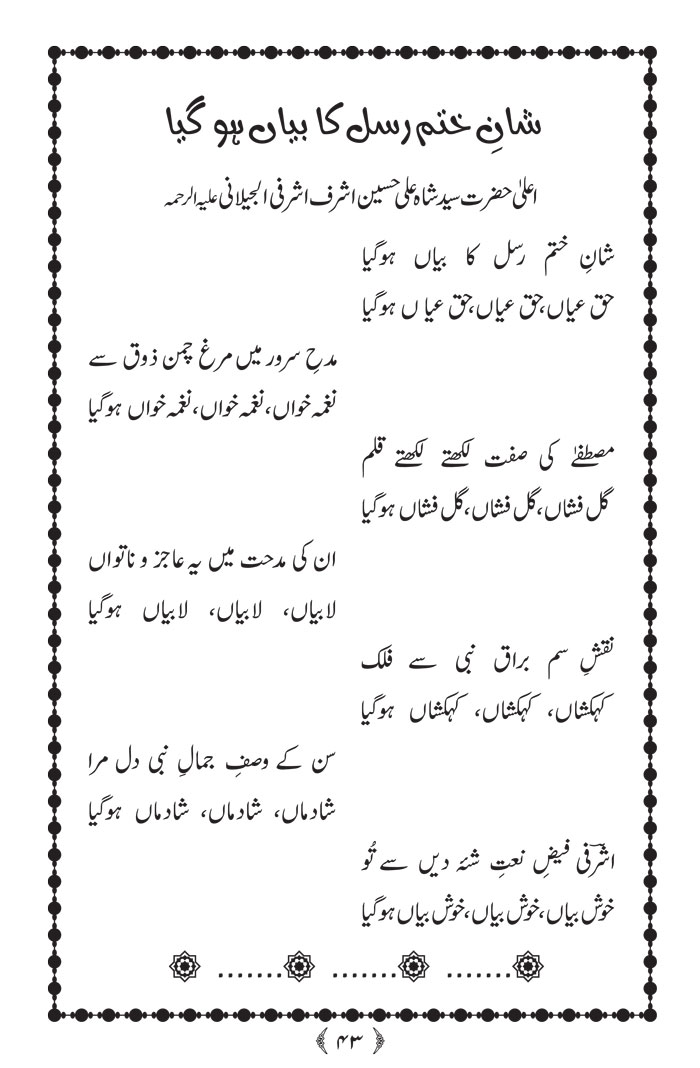 شانِ ختم رسل کا بیاں ہو گیا
اعلیٰ حضرت سید شاہ علی حسین اشرف اشرفی الجیلانی علیہ الرحمہ
شانِ ختم رسل کا بیاں ہوگیا
حق عیاں،حق عیاں،حق عیا ں ہوگیا
مدحِ سرور میں مرغ چمن ذوق سے
نغمہ خواں،نغمہ خواں،نغمہ خواں ہوگیا
مصطفےٰ کی صفت لکھتے لکھتے قلم
گل فشاں،گل فشاں،گل فشاں ہوگیا
ان کی مدحت میں یہ عاجز و ناتواں
لابیاں، لابیاں، لابیاں ہوگیا
نقشِ سم براق نبی سے فلک
کہکشاں، کہکشاں، کہکشاں ہوگیا
سن کے وصفِ جمالِ نبی دل مرا
شادماں، شادماں، شادماں ہوگیا
اشرفی فیضِ نعتِ شئہ دیں سے تُو
خوش بیاں،خوش بیاں،خوش بیاں ہوگیا
....... ....... .......
﴿ ۴۳ ﴾